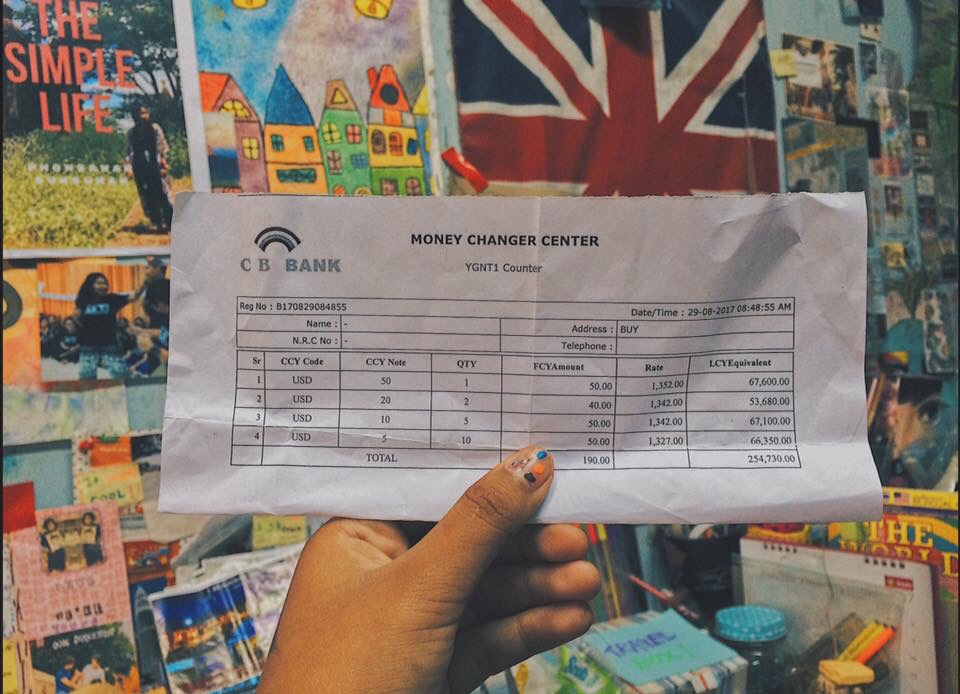 THE
SIMPLE
LIFE
CB BANK
MONEY CHANGER CENTER
YGNT1 Counter
Reg No : B170829084855 Date/Time : 29-08-2017 08:48:55 AM
Name : - Address : BUY
N.R.C No : - Telephone :
Sr CCY Code CCY Note QTY FCYAmount Rate LCYEquivalent
1 USD 50 1 50.00 1,352.00 67,600.00
2 USD 20 2 40.00 1,342.00 53,680.00
3 USD 10 5 50.00 1,342.00 67,100.00
4 USD 5 10 50.00 1,327.00 66,350.00
TOTAL 190.00 254,730.00
THE
WORLD
TRAVEL